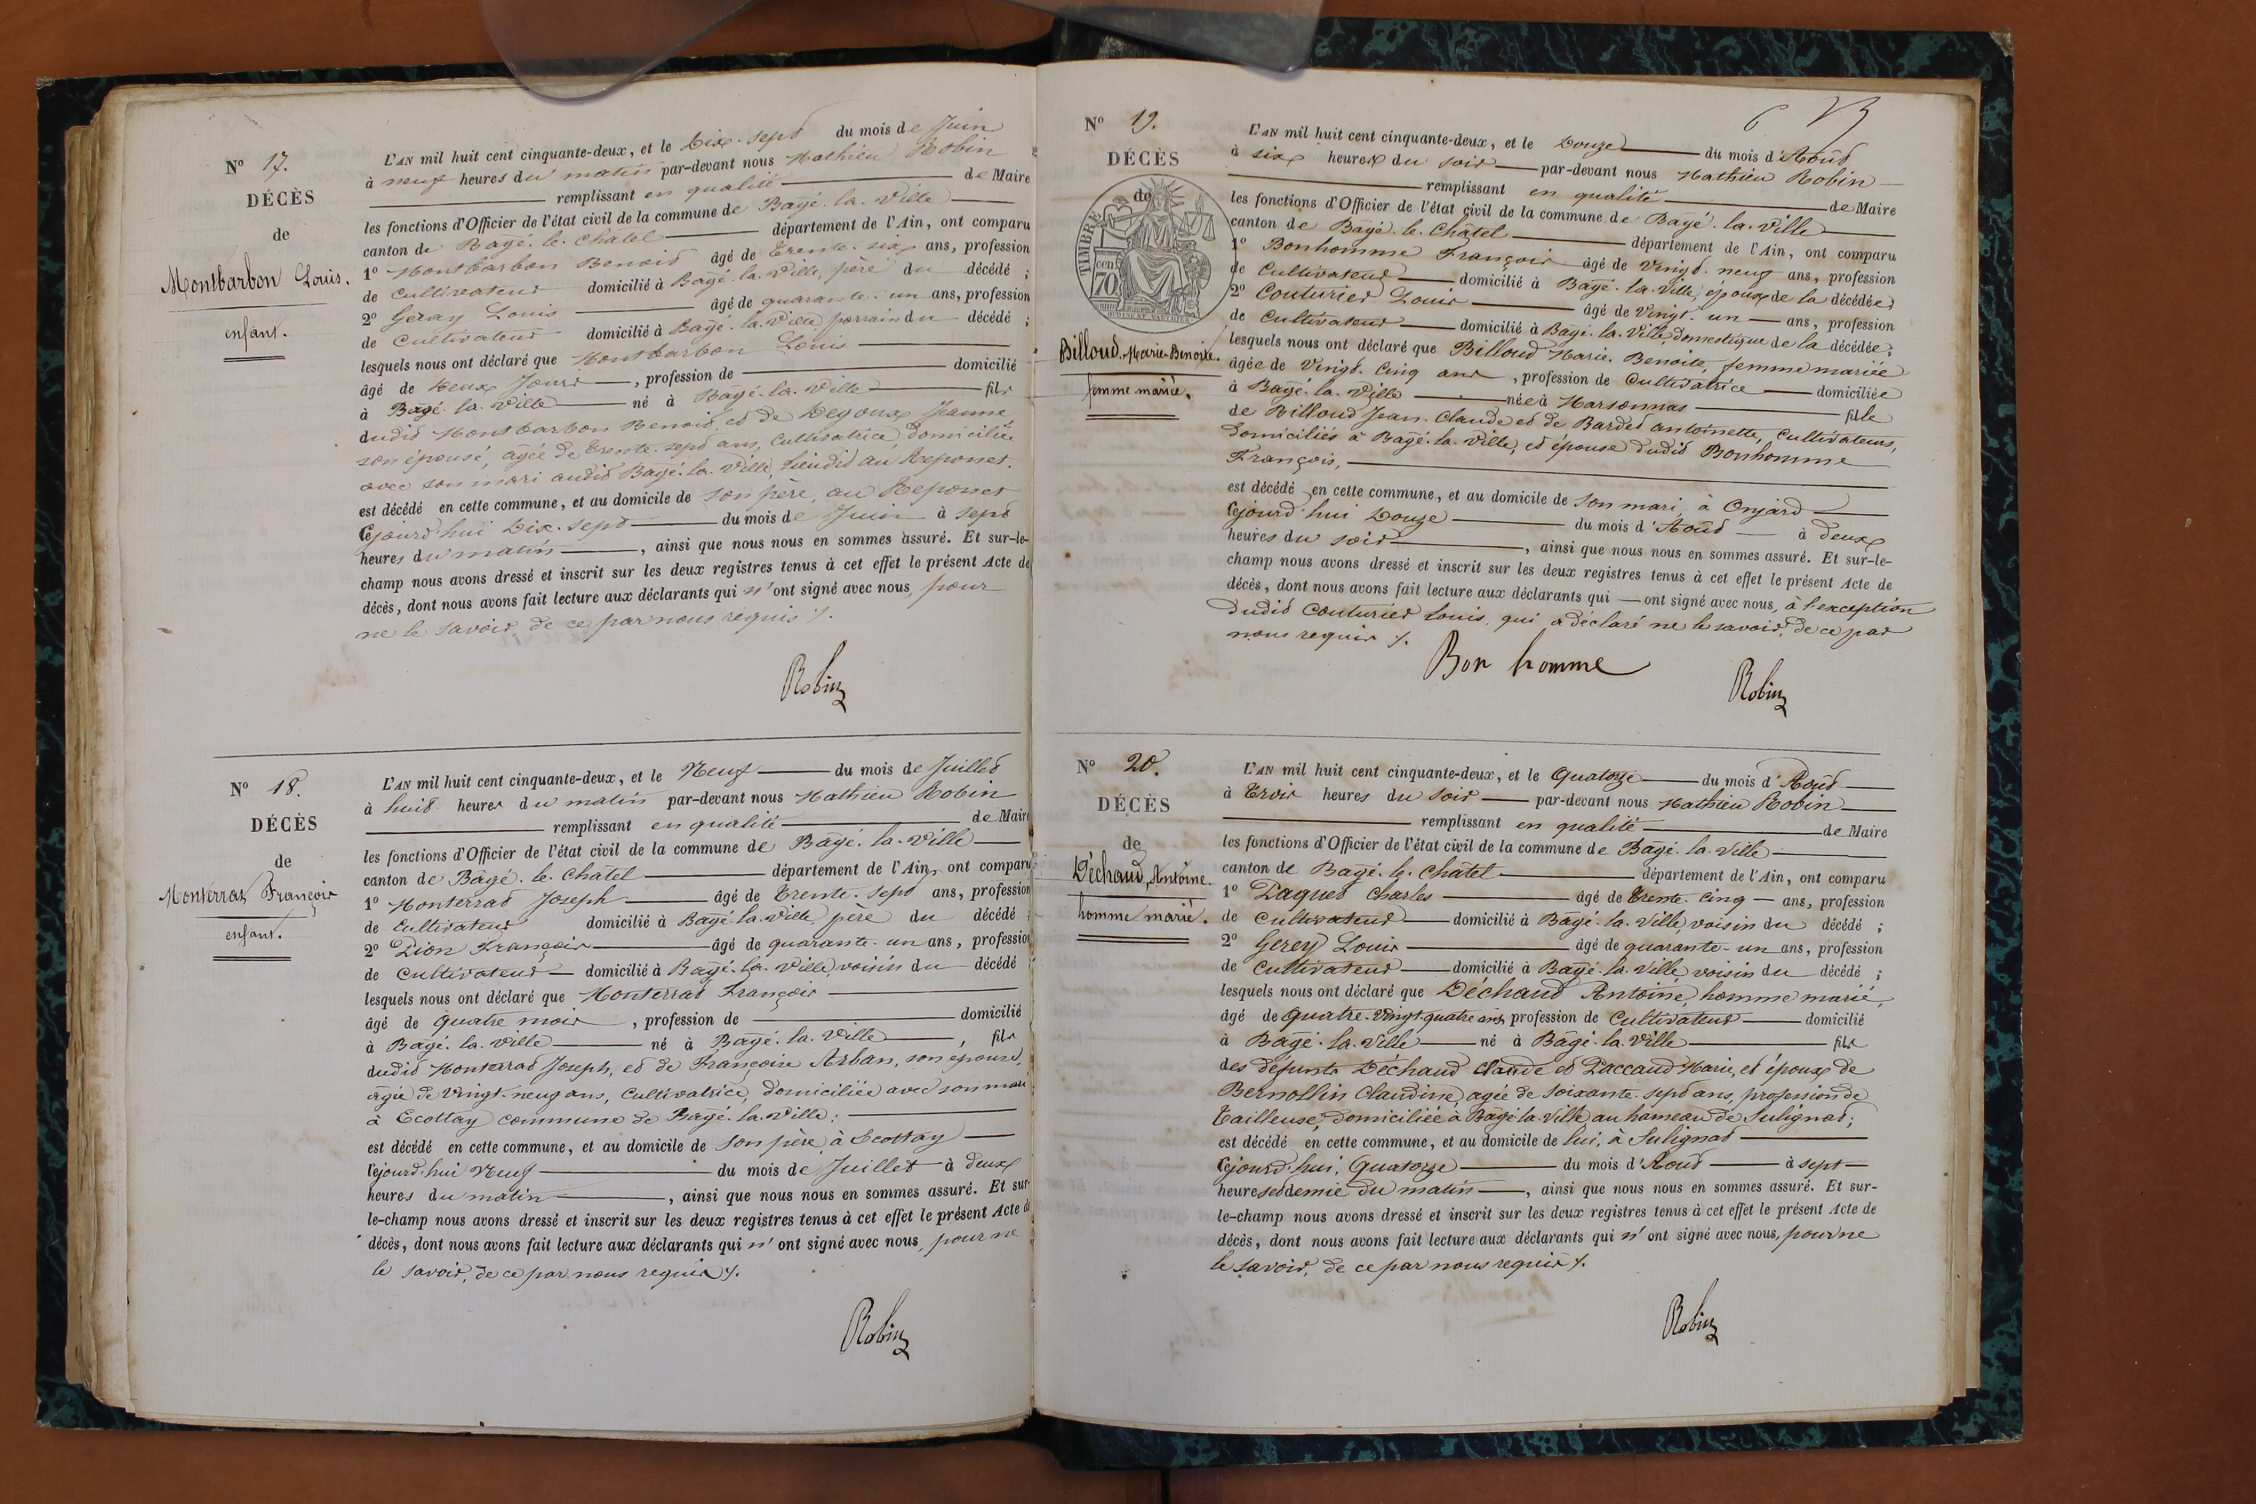 N° 17.
DÉCÈS
de
Montbarbon Louis.
enfant.
L'AN mil huit cent cinquante-deux, et le Dix-sept du mois de Juin
à neuf heures du matin par-devant nous Mathieu Robin
remplissant en qualité de Maire
les fonctions d'Officier de l'état civil de la commune de Bâgé-la-Ville
canton de Bâgé-le-Châtel département de l'Ain, ont comparu
1° Montbarbon Benoit âgé de Trente-six ans, profession
de Cultivateur domicilié à Bâgé-la-Ville, père du décédé ;
2° Geray Louis âgé de quarante-un ans, profession
de Cultivateur domicilié à Bâgé-la-Ville parrain du décédé ;
lesquels nous ont déclaré que Montbarbon Louis
âgé de Deux Jours, profession de domicilié
à Bâgé-la-Ville né à Bâgé-la-Ville fils
dudit Montbarbon Benoit, et de Degoux Jeanne
son épouse, âgée de Trente-sept ans, Cultivatrice, domiciliée
avec son mari audit Bâgé-la-Ville, lieudit au Reponet.
est décédé en cette commune, et au domicile de son père, au Reponet
Cejourd'hui Dix-sept du mois de Juin à sept
heures du matin, ainsi que nous nous en sommes assuré. Et sur-le-
champ nous avons dressé et inscrit sur les deux registres tenus à cet effet le présent Acte de
décès, dont nous avons fait lecture aux déclarants qui n'ont signé avec nous, pour
ne le savoir de ce par nous requis /.
Robin
N° 18.
DÉCÈS
de
Monterrat François
enfant.
L'AN mil huit cent cinquante-deux, et le Neuf du mois de Juillet
à huit heures du matin par-devant nous Mathieu Robin
remplissant en qualité de Maire
les fonctions d'Officier de l'état civil de la commune de Bâgé-la-Ville
canton de Bâgé-le-Châtel département de l'Ain, ont comparu
1° Monterrat Joseph âgé de Trente-sept ans, profession
de Cultivateur domicilié à Bâgé-la-Ville père du décédé ;
2° Pion François âgé de quarante-un ans, profession
de Cultivateur domicilié à Bâgé-la-Ville, voisin du décédé
lesquels nous ont déclaré que Monterrat François
âgé de quatre mois, profession de domicilié
à Bâgé-la-Ville né à Bâgé-la-Ville, fils
dudit Monterrat Joseph, et de Françoise Arban, son épouse,
âgée de vingt-neuf ans, Cultivatrice, domiciliée avec son mari
à Ecottay commune de Bâgé-la-Ville ;
est décédé en cette commune, et au domicile de son père, à Ecottay
Cejourd'hui Neuf du mois de Juillet à deux
heures du matin, ainsi que nous nous en sommes assuré. Et sur-
le-champ nous avons dressé et inscrit sur les deux registres tenus à cet effet le présent Acte de
décès, dont nous avons fait lecture aux déclarants qui n'ont signé avec nous, pour ne
le savoir, de ce par nous requis /.
Robin
6
N° 19.
DÉCÈS
de
TIMBRE
70
Billoud Marie-Benoite.
femme mariée.
L'AN mil huit cent cinquante-deux, et le Douze du mois d'Août
à six heures du soir par-devant nous Mathieu Robin
remplissant en qualité de Maire
les fonctions d'Officier de l'état civil de la commune de Bâgé-la-Ville
canton de Bâgé-le-Châtel département de l'Ain, ont comparu
1° Bonhomme François âgé de Vingt-neuf ans, profession
de Cultivateur domicilié à Bâgé-la-Ville, époux de la décédée ;
2° Couturier Louis âgé de Vingt-un ans, profession
de Cultivateur domicilié à Bâgé-la-Ville, domestique de la décédée ;
lesquels nous ont déclaré que Billoud Marie-Benoite, femme mariée
âgée de Vingt-Cinq ans, profession de Cultivatrice domiciliée
à Bâgé-la-Ville née à Marsonnas fille
de Billoud Jean-Claude et de Bardet antoinette, Cultivateurs,
domiciliés à Bâgé-la-Ville, et épouse dudit Bonhomme
François,
est décédé en cette commune, et au domicile de son mari, à Onjard
Cejourd'hui Douze du mois d'Août à deux
heures du soir, ainsi que nous nous en sommes assuré. Et sur-le-
champ nous avons dressé et inscrit sur les deux registres tenus à cet effet le présent Acte de
décès, dont nous avons fait lecture aux déclarants qui ont signé avec nous, à l'exception
dudit Couturier Louis, qui a déclaré ne le savoir, de ce par
nous requis /.
Bon homme
Robin
N° 20.
DÉCÈS
de
Déchaud, Antoine.
homme marié.
L'AN mil huit cent cinquante-deux, et le Quatorze du mois d'Août
à Trois heures du soir par-devant nous Mathieu Robin
remplissant en qualité de Maire
les fonctions d'Officier de l'état civil de la commune de Bâgé-la-Ville
canton de Bâgé-le-Châtel département de l'Ain, ont comparu
1° Paquet Charles âgé de Trente-cinq ans, profession
de Cultivateur domicilié à Bâgé-la-Ville, voisin du décédé ;
2° Gerey Louis âgé de quarante-un ans, profession
de Cultivateur domicilié à Bâgé-la-Ville voisin du décédé ;
lesquels nous ont déclaré que Déchaud Antoine, homme marié,
âgé de quatre-Vingt quatre ans, profession de Cultivateur domicilié
à Bâgé-la-Ville né à Bâgé-la-Ville fils
des défunts Déchaud Claude et Paccaud Marie, et époux de
Bernollin Claudine, agée de soixante-sept ans, profession de
Tailleuse, domiciliée à Bâgé-la-Ville au hameau de Sulignat ;
est décédé en cette commune, et au domicile de lui, à Sulignat
Cejourd'hui, Quatorze du mois d'Août à sept
heures et demie du matin, ainsi que nous nous en sommes assuré. Et sur-
le-champ nous avons dressé et inscrit sur les deux registres tenus à cet effet le présent Acte de
décès, dont nous avons fait lecture aux déclarants qui n'ont signé avec nous, pour ne
le savoir, de ce par nous requis /.
Robin